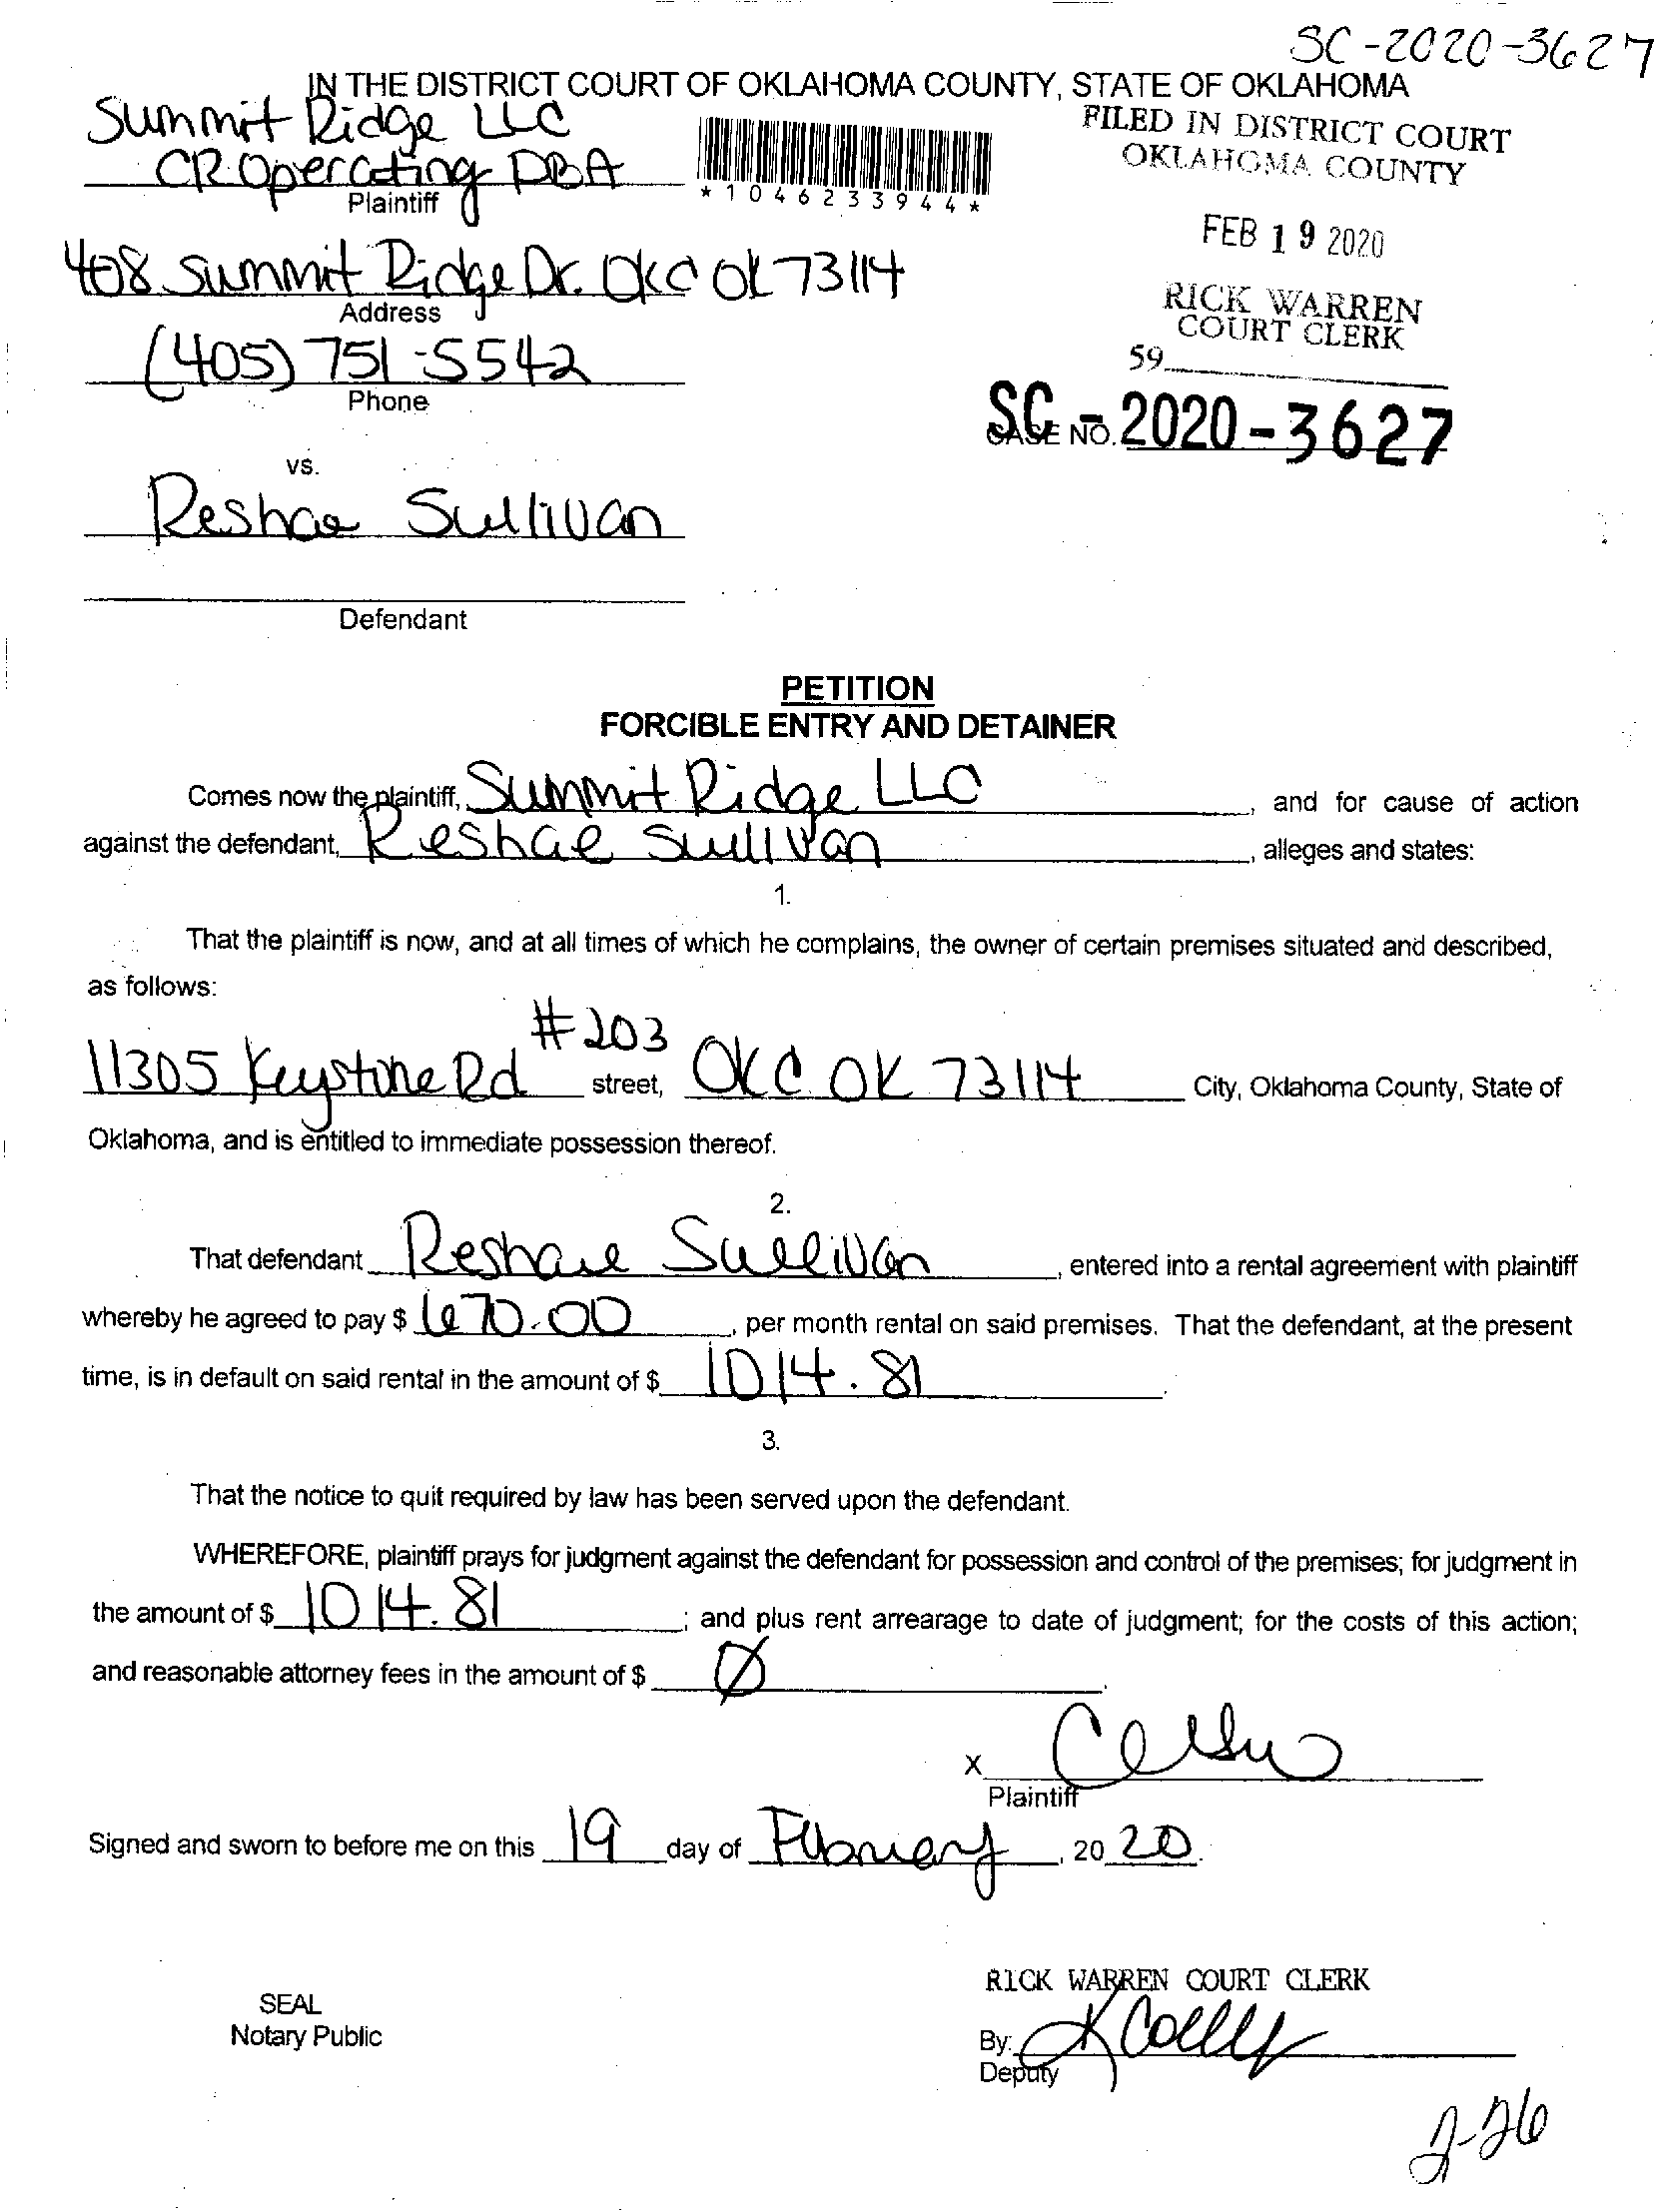 SC-2020-3627
IN THE DISTRICT COURT OF OKLAHOMA COUNTY, STATE OF OKLAHOMA
Summit Ridge LLC
CR Operating DBA
Plaintiff
*1046233944*
FILED IN DISTRICT COURT
OKLAHOMA COUNTY
FEB 19 2020
RICK WARREN
COURT CLERK
59
408 Summit Ridge Dr. OKC OK 73114
Address
(405) 751-5542
Phone
CASE NO. SC-2020-3627
vs.
Reshae Sullivan
Defendant
PETITION
FORCIBLE ENTRY AND DETAINER
Comes now the plaintiff, Summit Ridge LLC, and for cause of action
against the defendant, Reshae Sullivan, alleges and states:
1.
That the plaintiff is now, and at all times of which he complains, the owner of certain premises situated and described,
as follows:
11305 Keystone Rd #203 street, OKC OK 73114 City, Oklahoma County, State of
Oklahoma, and is entitled to immediate possession thereof.
2.
That defendant Reshae Sullivan, entered into a rental agreement with plaintiff
whereby he agreed to pay $ 670.00, per month rental on said premises. That the defendant, at the present
time, is in default on said rental in the amount of $ 1014.81.
3.
That the notice to quit required by law has been served upon the defendant.
WHEREFORE, plaintiff prays for judgment against the defendant for possession and control of the premises; for judgment in
the amount of $ 1014.81; and plus rent arrearage to date of judgment; for the costs of this action;
and reasonable attorney fees in the amount of $ Ø.
X
Plaintiff
Signed and sworn to before me on this 19 day of February, 2020.
RICK WARREN COURT CLERK
SEAL
Notary Public
By:
Deputy
2-26